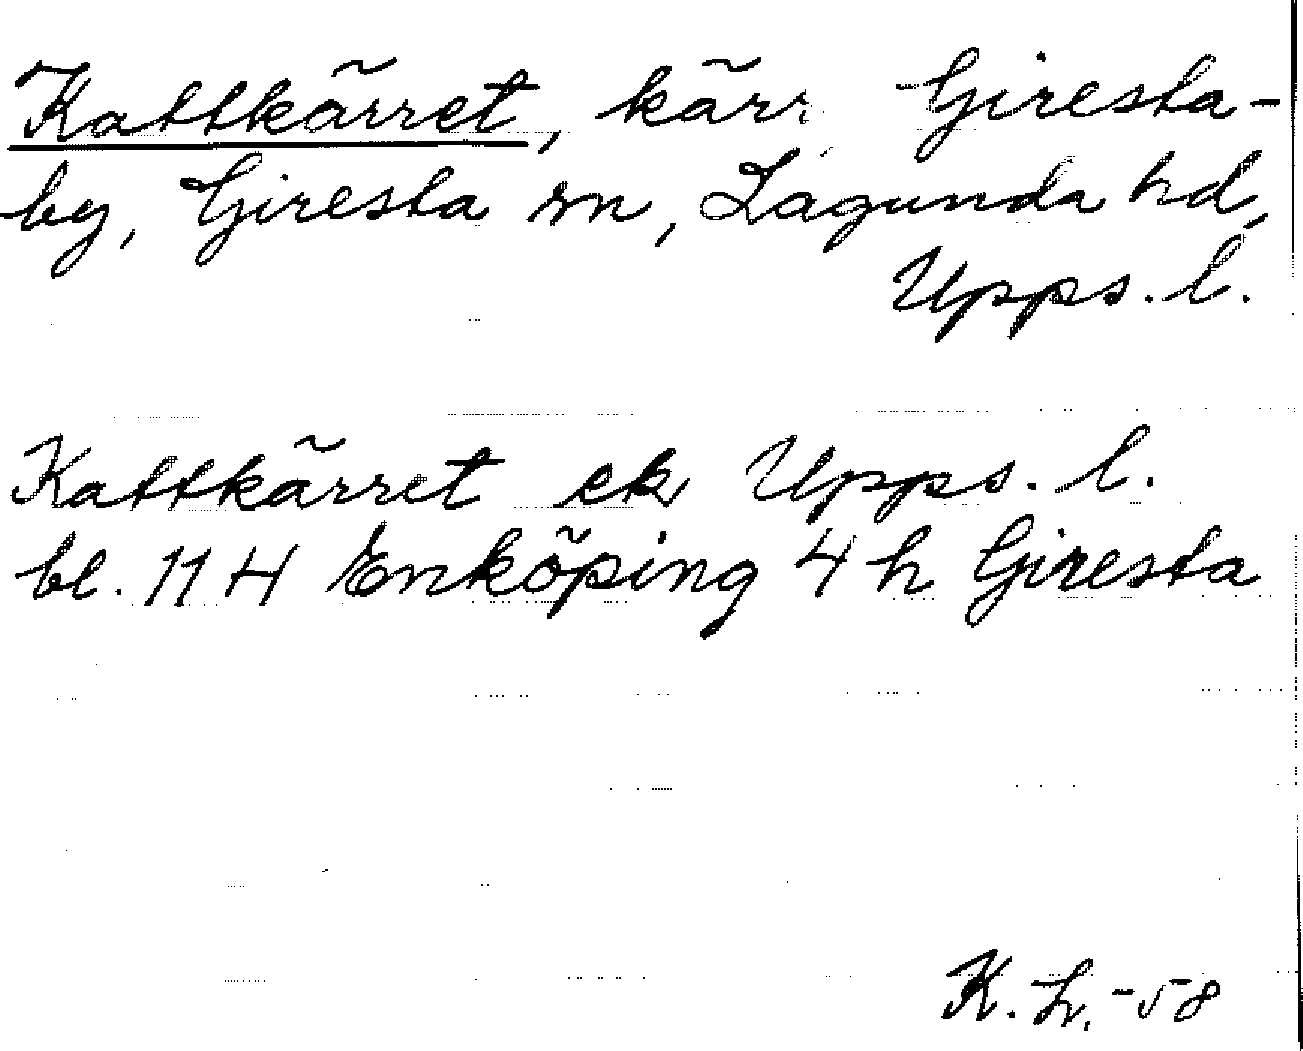 Kattkärret, kärr Giresta-
by, Giresta sn, Lagunda hd,
Upps. l.
Kattkärret ek Upps. l.
bl. 114 Enköping 4 h Giresta
K. H. -58